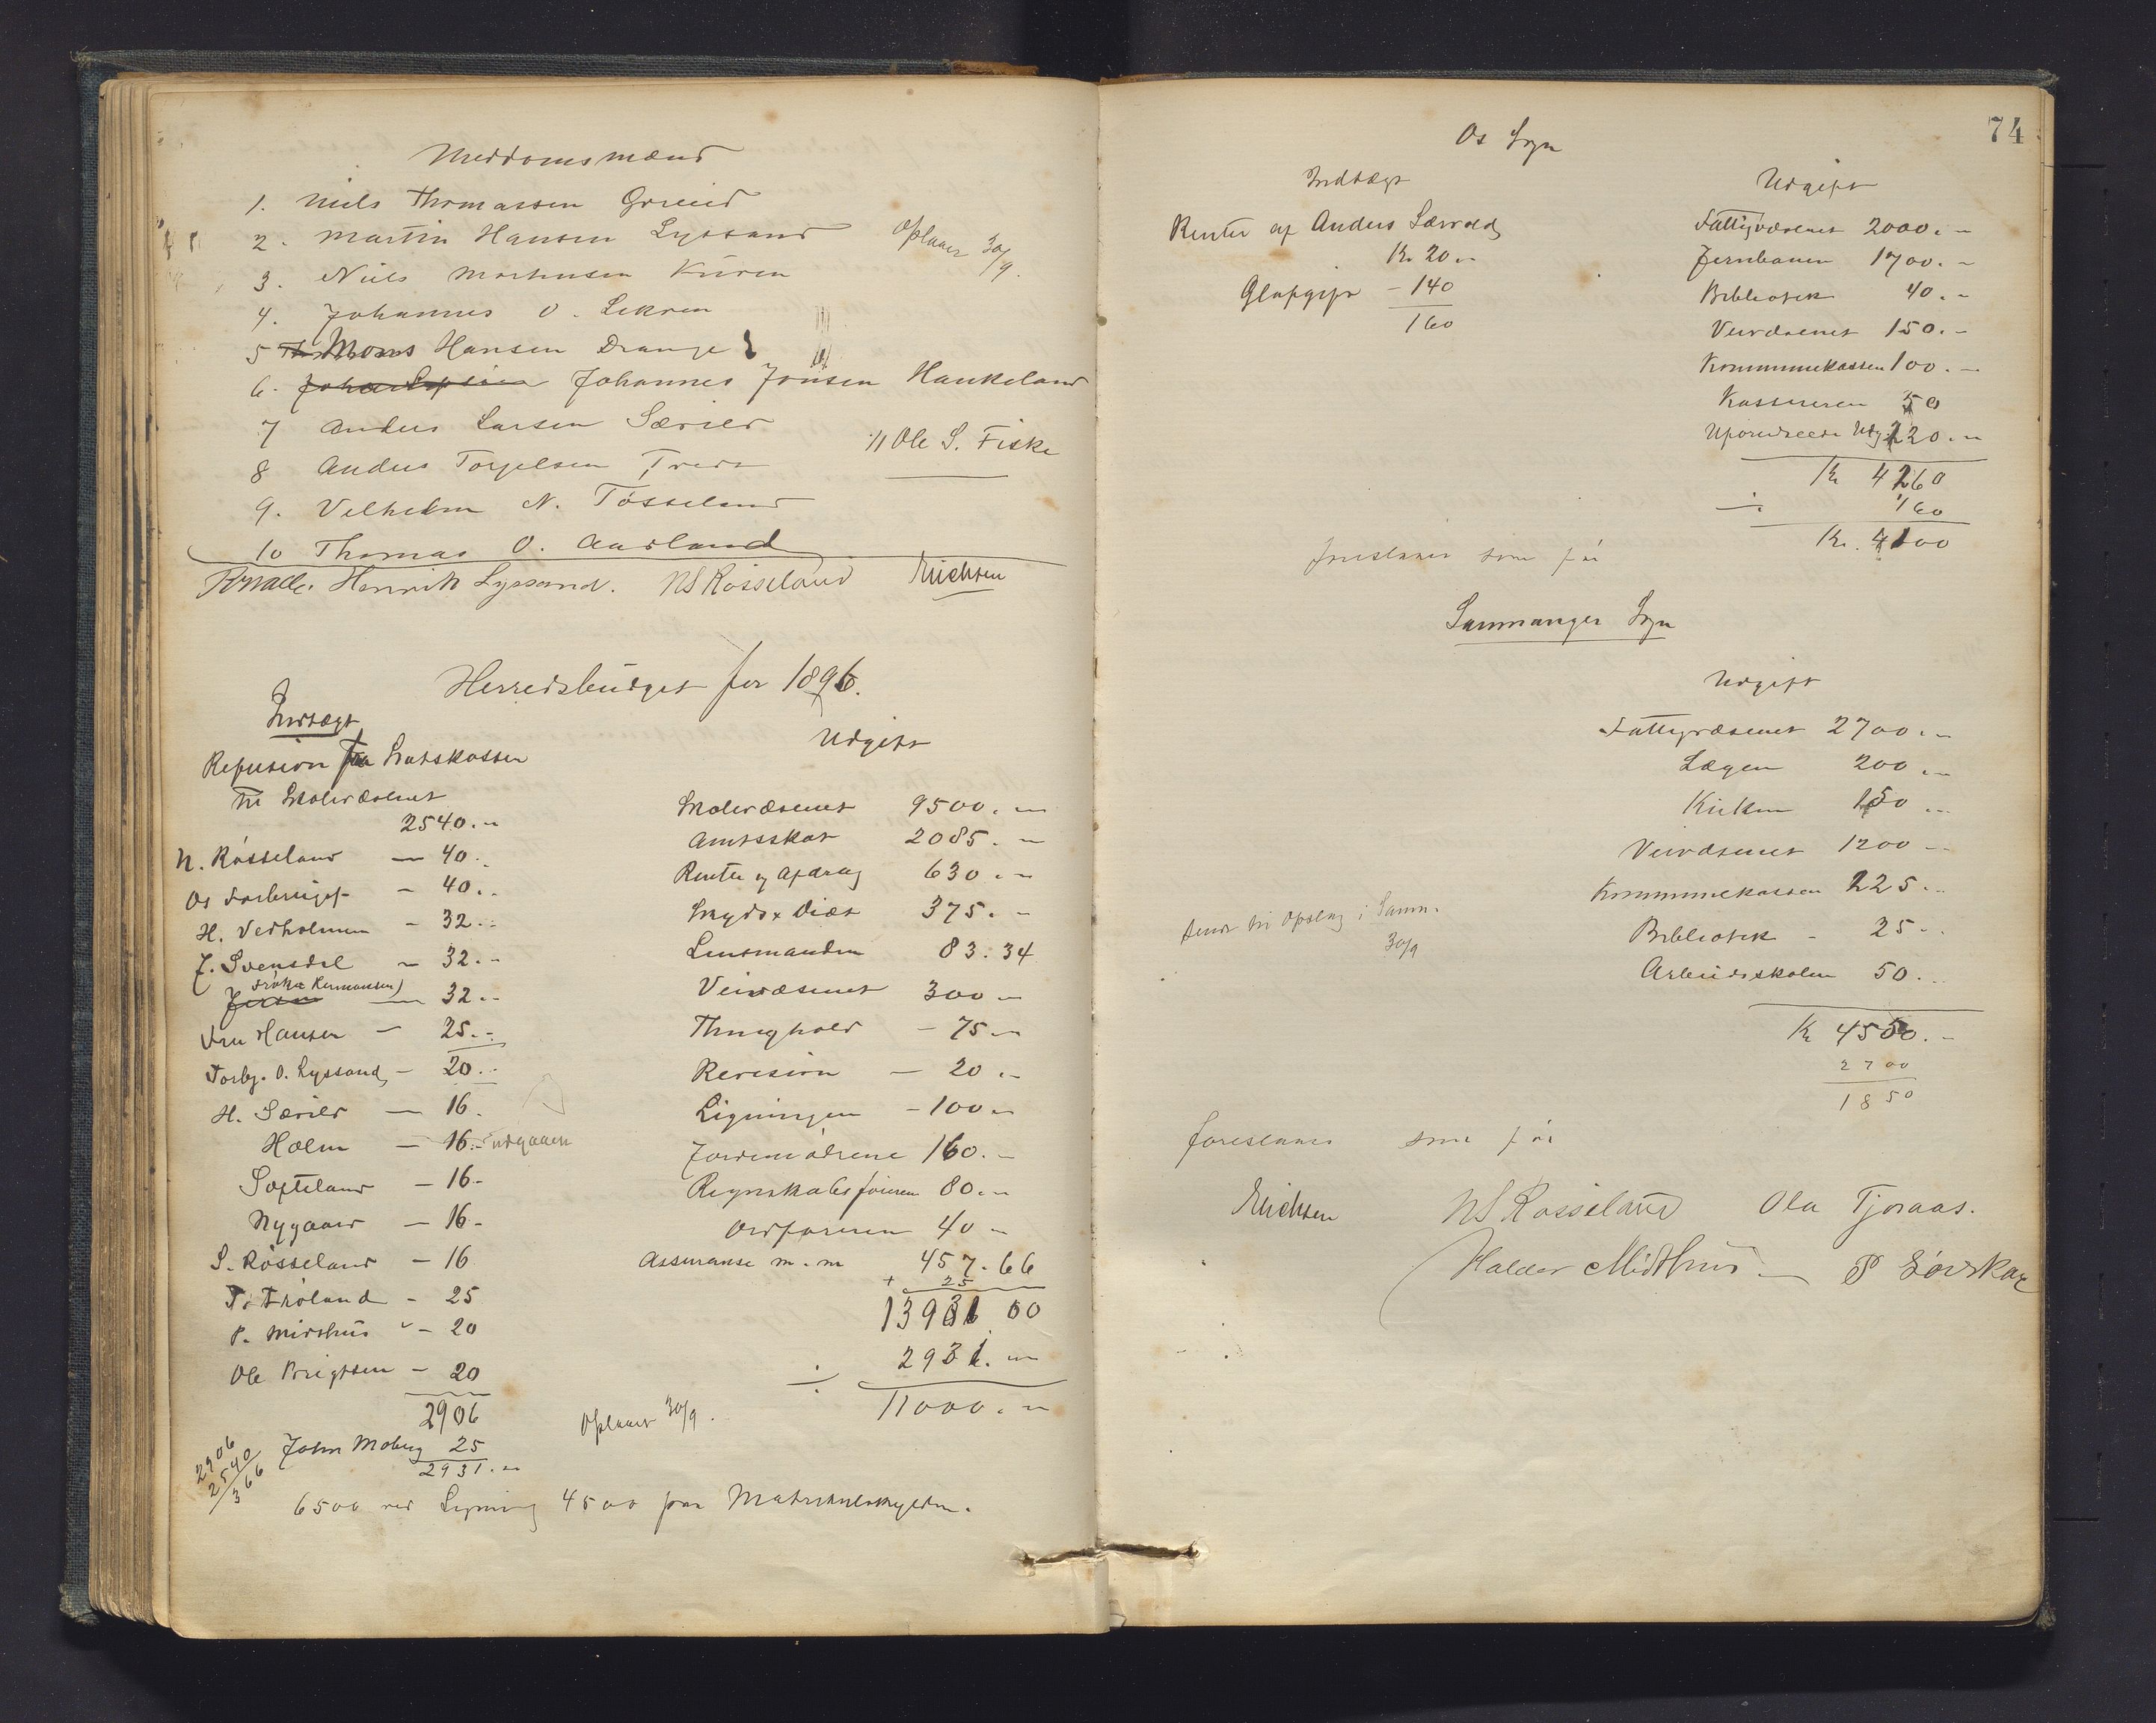 Meddomsmænd
1. Niels Thomassen Greied
2. Martin Hansen Lyssand
Oplæst 30/9.
3. Niels Mortensen Kuven
4. Johannes O. Lekven
5 Mons Hansen Drange
6. Johannes Jonsen Haukeland
7 Anders Larsen Særsen
8 Anders Torjelsen Tveit
11 Ole S. Fiske
9. Vilhelm N. Tøsseland
10 Thomas O. Aarland
Henrik Lyssand. NS Røsseland Erichsen
Herredsbudget for 1896.
Indtægt
Refusion fra Statskassen
til Skolevæsenet
2540.-
N. Røsseland - 40..
Os Forbrugsf. - 40..
H. Vedholmen - 32..
J. Svensdal - 32.-
Frøken Hermansen)
- 32.-
Fru Hansen - 25.-
Torbj. O. Lyssand - 20..
H. Særsen - 16.
Holm - 16.- udgaaen
Søfteland - 16-
Nygaard - 16-
S. Røsseland - 16
T. Tøland - 25
P. Midthus - 20
Ole Brigtsen - 20
2906
John Moberg 25
2931.-
2906
2540
366
Udgift
Skolevæsenet 9500.-
Amtsskat 2085.-
Renter og Afdrag 630.-
Skyds x Diæt 375.-
Lensmanden 83.34
Veivæsenet 300-
Thinghold - 75-
Revision - 20.-
Ligningen - 100-
Jordemødrene 160.-
Regnskabsføreren 80.-
Ordføreren 40-
Assuranse m.m 457.66
+ 25
13931 00
÷ 2931.-
11000.-
Oplæst 30/9.
6500 ved Ligning 4500 paa Matrikulskylden.
74
Os Sogn
Indtægt
Renter af Anders Særvold
Kr. 20.-
Glapgift - 140
160
Udgift
Fattigvæsenet 2000.-
Jernbanen 1700.-
Bibliothek 40.-
Veivæsenet 150.-
Kommunekassen 100.-
Kassereren 50
Uforudseede Udg. 220.-
Kr 4260
÷ 160
Kr. 4100
foreslaaes som før
Samnanger Sogn
Udgift
Fattigvæsenet 2700.-
Lægen 200.-
Kirken 150.-
Veivæsenet 1200-
Kommunekassen 225..
Bibliothek - 25..
Arbeidsskolen 50..
Kr 4550.-
2700
1850
Sendt til Opslag i Samn.
30/9
foreslaaes som før
Erichsen NS Røsseland Ola Tjoraas.
Haldor Midthus - P Løvskar